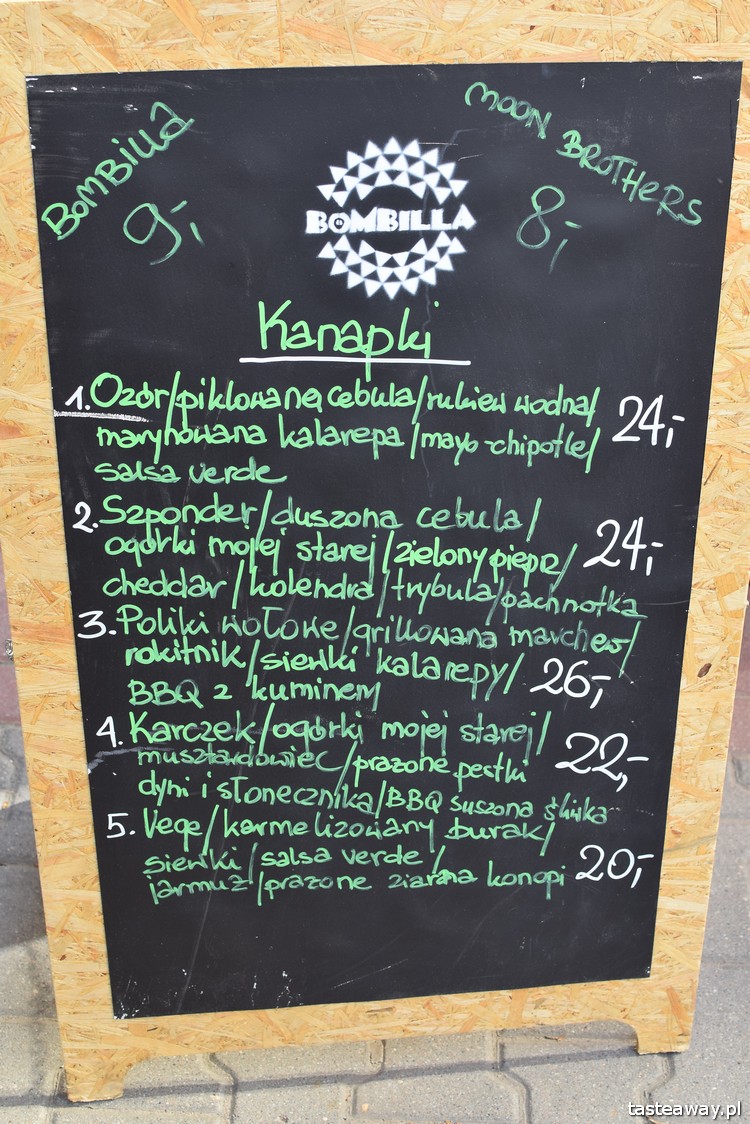 BOMBILLA
9,-
MOON BROTHERS
8,-
BOMBILLA
Kanapki
1. Ozór/piklowana cebula/rukiew wodna/
marynowana kalarepa/mayo-chipotle/ 24,-
salsa verde
2. Szponder/duszona cebula/
ogórki mojej starej/zielony pieprz/ 24,-
cheddar/kolendra/trybula/pachnotka
3. Poliki wołowe/grillowana marchew/
rokitnik/siewki kalarepy/ 26,-
BBQ z kuminem
4. Karczek/ogórki mojej starej/
musztardowiec/prażone pestki 22,-
dyni i słonecznika/BBQ suszona śliwka
5. Vege/karmelizowany burak/
siewki/salsa verde/ 20,-
jarmuż/prażone ziarna konopi
tasteaway.pl